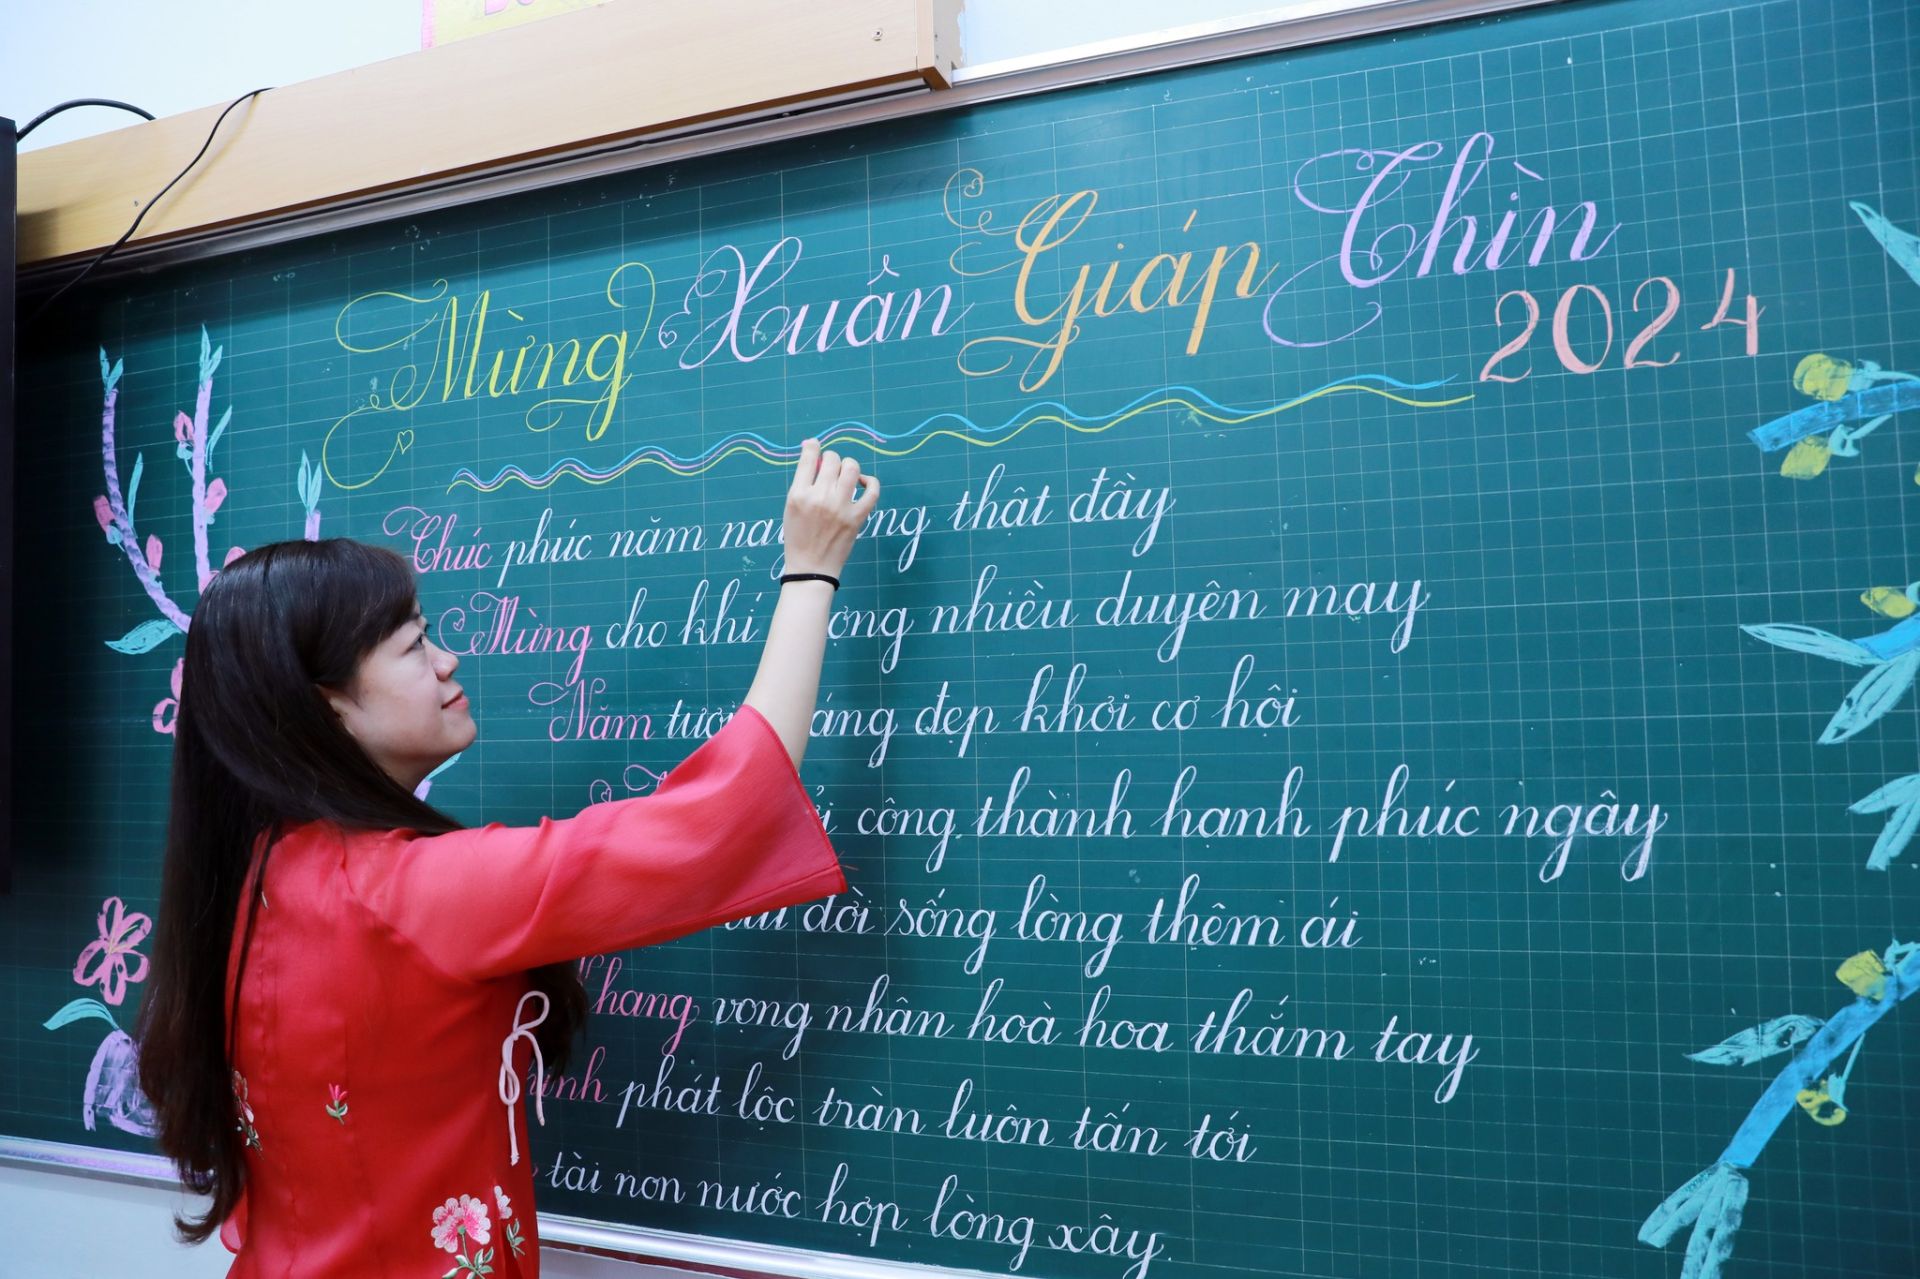 Mừng Xuân Giáp Thìn
2024
Chúc phúc năm nay thật đầy
Mừng cho khí nhiều duyên may
Năm đẹp khởi cơ hội
công thành hạnh phúc ngây
đời sống lòng thêm ái
Khang vọng nhân hoà hoa thắm tay
phát lộc tràn luôn tấn tới
tài non nước hợp lòng xây.